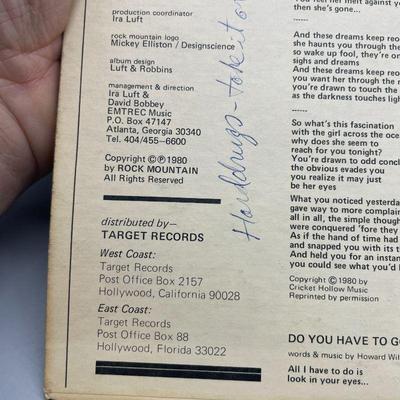 production coordinator
Ira Luft
rock mountain logo
Mickey Elliston / Designscience
album design
Luft & Robbins
management & direction
Ira Luft &
David Bobbey
EMTREC Music
P.O. Box 47147
Atlanta, Georgia 30340
Tel. 404/455-6600
Copyright ©℗1980
by ROCK MOUNTAIN
All Rights Reserved
distributed by—
TARGET RECORDS
West Coast:
Target Records
Post Office Box 2157
Hollywood, California 90028
East Coast:
Target Records
Post Office Box 88
Hollywood, Florida 33022
Harddrugs - take it or
then she's gone...
------
And these dreams keep
she haunts you through the
so wake up fool, they're
sights and dreams
And these dreams keep
you want her through the
you're drawn to the
as the darkness touches
------
So what's this fascination
with the girl across the
why does she seem to
reach for you tonight?
You're drawn to odd
the obvious evades you
you realize it may just
be her eyes
What you noticed
gave way to more
all in all, the simple
were conquered 'fore they
As if the hand of time had
and snapped you with its
And held you for an instant
you could see what you'd
Copyright © 1980 by
Cricket Hollow Music
Reprinted by permission
DO YOU HAVE TO
words & music by Howard
All I have to do is
look in your eyes...